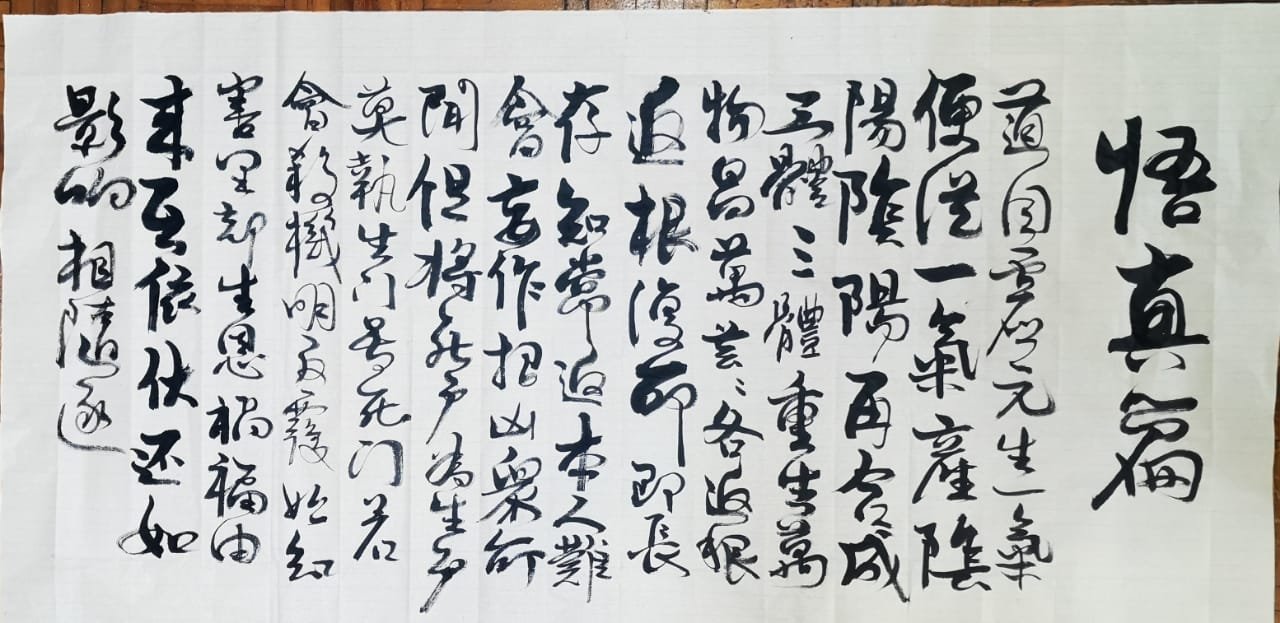 悟真篇
道自虛无生一氣
便從一氣產陰
陽陰陽再合成
三體三體重生萬
物昌萬芸〻各返根
返根復命即長
存知常返本人難
會妄作招凶眾所
聞但將死戶為生戶
莫執生门号死门若
會殺機明反覆始知
害里却生恩禍福由
來互依伏还如
影响相隨逐